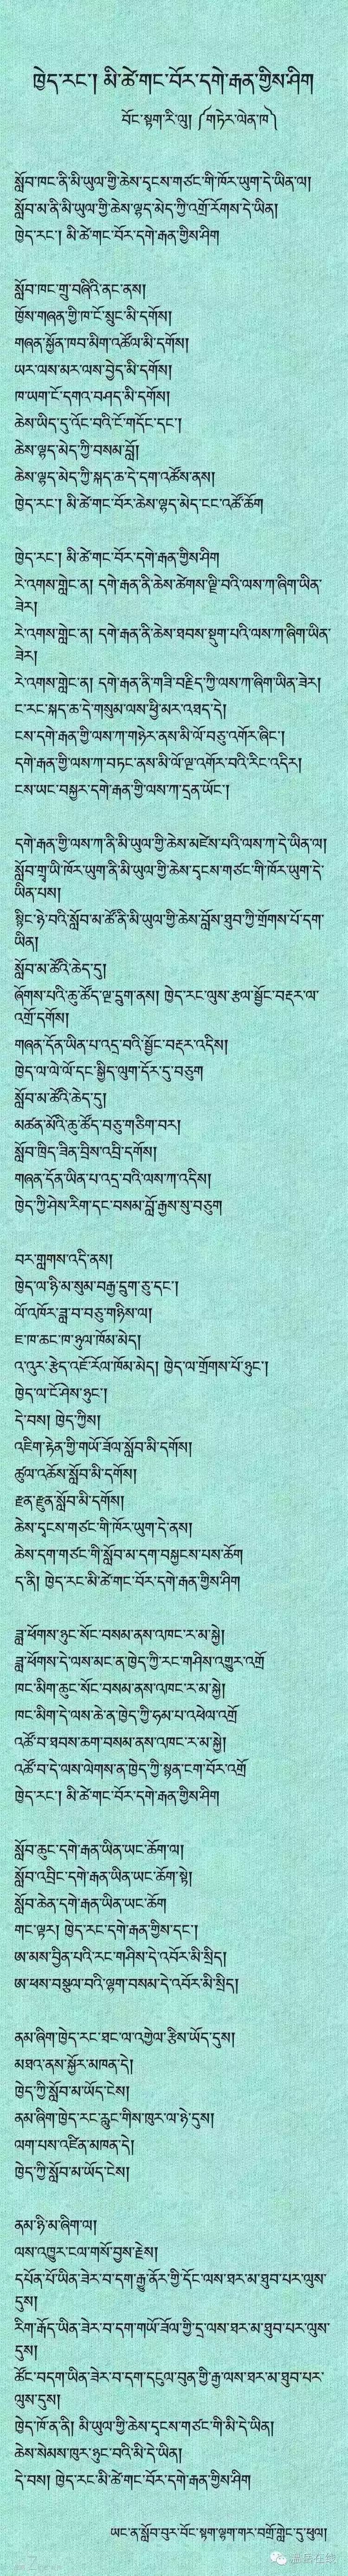 ཁྱེད་རང་། མི་ཚེ་གང་བོར་དགེ་རྒན་གྱིས་ཤིག
བོང་སྟག་རི་ལུ། ༼གཏེར་ལེན་ཁ༽
སློབ་ཁང་ནི་མི་ཡུལ་གྱི་ཆེས་དྭངས་གཙང་གི་ཁོར་ཡུག་དེ་ཡིན་ལ།
སློབ་མ་ནི་མི་ཡུལ་གྱི་ཆེས་ལྷད་མེད་ཀྱི་འགྲོ་རོགས་དེ་ཡིན།
ཁྱེད་རང་། མི་ཚེ་གང་བོར་དགེ་རྒན་གྱིས་ཤིག
སློབ་ཁང་གྲུ་བཞིའི་ནང་ནས།
ཁྱོས་གཞན་གྱི་ཁ་ངོ་སྲུང་མི་དགོས།
གཞན་སྐྱོན་ཁབ་མིག་འཚོལ་མི་དགོས།
ཡར་ལས་མར་ལས་བྱེད་མི་དགོས།
ཁ་ཡག་ངོ་དགའ་བཤད་མི་དགོས།
ཆེས་ཡིད་དུ་འོང་བའི་ངོ་གདོང་དང་།
ཆེས་ལྷད་མེད་ཀྱི་བསམ་བློ།
ཆེས་ལྷད་མེད་ཀྱི་སྐད་ཆ་དེ་དག་འཚོས་ནས།
ཁྱེད་རང་། མི་ཚེ་གང་བོར་ཆེས་ལྷད་མེད་ངང་འཚོ་ཆོག
ཁྱེད་རང་། མི་ཚེ་གང་བོར་དགེ་རྒན་གྱིས་ཤིག
རེ་འགས་གླེང་ན། དགེ་རྒན་ནི་ཆེས་ཚེགས་ལྗི་བའི་ལས་ཀ་ཞིག་ཡིན་
ཟེར།
རེ་འགས་གླེང་ན། དགེ་རྒན་ནི་ཆེས་ཐབས་སྡུག་པའི་ལས་ཀ་ཞིག་ཡིན་
ཟེར།
རེ་འགས་གླེང་ན། དགེ་རྒན་ནི་གཟི་བརྗིད་ཀྱི་ལས་ཀ་ཞིག་ཡིན་ཟེར།
ང་རང་སྐད་ཆ་དེ་གསུམ་ལས་ཕྱི་མར་འཐད་དེ།
ངས་དགེ་རྒན་གྱི་ལས་ཀ་གཉེར་ནས་མི་ལོ་བཅུ་འགོར་ཞིང་།
དགེ་རྒན་གྱི་ལས་ཀ་བཏང་ནས་མི་ལོ་ལྔ་འགོར་བའི་རིང་འདིར།
ངས་ཡང་བསྐྱར་དགེ་རྒན་གྱི་ལས་ཀ་དྲན་ཡོང་།
དགེ་རྒན་གྱི་ལས་ཀ་ནི་མི་ཡུལ་གྱི་ཆེས་མཛེས་པའི་ལས་ཀ་དེ་ཡིན་ལ།
སློབ་གྲྭ་ཡི་ཁོར་ཡུག་ནི་མི་ཡུལ་གྱི་ཆེས་དྭངས་གཙང་གི་ཁོར་ཡུག་དེ་
ཡིན་པས།
སྙིང་ཉེ་བའི་སློབ་མ་ཚོ་ནི་མི་ཡུལ་གྱི་ཆེས་བློས་ཐུབ་ཀྱི་གྲོགས་པོ་དག་
ཡིན།
སློབ་མ་ཚོའི་ཆེད་དུ།
ཞོགས་པའི་ཆུ་ཚོད་ལྔ་དྲུག་ནས། ཁྱེད་རང་ལུས་རྩལ་སྦྱོང་བརྡར་ལ་
འགྲོ་དགོས།
གཞན་དོན་ཡིན་པ་འདྲ་བའི་སྦྱོང་བརྡར་འདིས།
ཁྱེད་ལ་ལེ་ལོ་དང་སྒྱིད་ལུག་དོར་དུ་བཅུག
སློབ་མ་ཚོའི་ཆེད་དུ།
མཚན་མོའི་ཆུ་ཚོད་བཅུ་གཅིག་བར།
སློབ་ཁྲིད་ཟིན་བྲིས་འབྲི་དགོས།
གཞན་དོན་ཡིན་པ་འདྲ་བའི་ལས་ཀ་འདིས།
ཁྱེད་ཀྱི་ཤེས་རིག་དང་བསམ་བློ་རྒྱས་སུ་བཅུག
བར་གླགས་འདི་ནས།
ཁྱེད་ལ་ཉི་མ་སུམ་བརྒྱ་དྲུག་ཅུ་དང་།
ལོ་འཁོར་ཟླ་བ་བཅུ་གཉིས་ལ།
ཇ་ཁ་ཆང་ཁ་ཉུལ་ཁོམ་མེད།
འ་འུར་རྩེད་འཇོ་རོལ་ཁོམ་མེད། ཁྱེད་ལ་གྲོགས་པོ་ཉུང་།
ཁྱེད་ལ་ངོ་ཤེས་ཉུང་།
དེ་བས། ཁྱེད་ཀྱིས།
འཇིག་རྟེན་གྱི་གཡོ་ཟོལ་སློབ་མི་དགོས།
ཚུལ་འཆོས་སློབ་མི་དགོས།
རྫུན་སློབ་མི་དགོས།
ཆེས་དྭངས་གཙང་གི་ཁོར་ཡུག་དེ་ནས།
ཆེས་དག་གཙང་གི་སློབ་མ་དག་བསྐྱངས་པས་ཆོག
ད་ནི། ཁྱེད་རང་མི་ཚེ་གང་བོར་དགེ་རྒན་གྱིས་ཤིག
ཟླ་ཕོགས་ཉུང་སོང་བསམ་ནས་འཁང་ར་མ་སྐྱེ།
ཟླ་ཕོགས་དེ་ལས་མང་ན་ཁྱེད་ཀྱི་རང་གཤིས་འགྱུར་འགྲོ
ཁང་མིག་ཆུང་སོང་བསམ་ནས་འཁང་ར་མ་སྐྱེ།
ཁང་མིག་དེ་ལས་ཆེ་ན་ཁྱེད་ཀྱི་ཧམ་པ་འཕེལ་འགྲོ
འཚོ་བ་ཐབས་ཆག་བསམ་ནས་འཁང་ར་མ་སྐྱེ།
འཚོ་བ་དེ་ལས་ལེགས་ན་ཁྱེད་ཀྱི་སྙན་ངག་བོར་འགྲོ
ཁྱེད་རང་། མི་ཚེ་གང་བོར་དགེ་རྒན་གྱིས་ཤིག
སློབ་ཆུང་དགེ་རྒན་ཡིན་ཡང་ཆོག་ལ།
སློབ་འབྲིང་དགེ་རྒན་ཡིན་ཡང་ཆོག་སྟེ།
སློབ་ཆེན་དགེ་རྒན་ཡིན་ཡང་ཆོག
གང་ལྟར། ཁྱེད་རང་དགེ་རྒན་གྱིས་དང་།
ཨ་མས་བྱིན་པའི་རང་གཤིས་དེ་འབོར་མི་སྲིད།
ཨ་ཕས་བསྩལ་བའི་ལྷག་བསམ་དེ་འབོར་མི་སྲིད།
ནམ་ཞིག་ཁྱེད་རང་ཐང་ལ་འགྱེལ་རྩིས་ཡོད་དུས།
མཐའ་ནས་སྐྱོར་མཁན་དེ།
ཁྱེད་ཀྱི་སློབ་མ་ཡོད་ངེས།
ནམ་ཞིག་ཁྱེད་རང་རླུང་གིས་ཁུར་ལ་ཉེ་དུས།
ལག་པས་འཛིན་མཁན་དེ།
ཁྱེད་ཀྱི་སློབ་མ་ཡོད་ངེས།
ནམ་ཉི་མ་ཞིག་ལ།
ལས་འཁྱུར་ངལ་གསོ་བྱས་རྗེས།
དཔོན་པོ་ཡིན་ཟེར་བ་དག་རྒྱུ་ནོར་གྱི་དོང་ལས་ཐར་མ་ཐུབ་པར་ལུས་
དུས།
རིག་རྒོད་ཡིན་ཟེར་བ་དག་གཡོ་ཟོལ་གྱི་དྲ་ལས་ཐར་མ་ཐུབ་པར་ལུས་
དུས།
ཚོང་བདག་ཡིན་ཟེར་བ་དག་དངུལ་བུན་གྱི་རྒྱ་ལས་ཐར་མ་ཐུབ་པར་
ལུས་དུས།
ཁྱེད་ཁོ་ན་ནི། མི་ཡུལ་གྱི་ཆེས་དྭངས་གཙང་གི་མི་དེ་ཡིན།
ཆེས་སེམས་ཁུར་ཉུང་བའི་མི་དེ་ཡིན།
དེ་བས། ཁྱེད་རང་མི་ཚེ་གང་བོར་དགེ་རྒན་གྱིས་ཤིག
ཡང་ན་སློབ་བུར་བོང་སྟག་ལྷག་གར་བགྲོ་གླེང་དུ་ཕུལ།
温岳在线